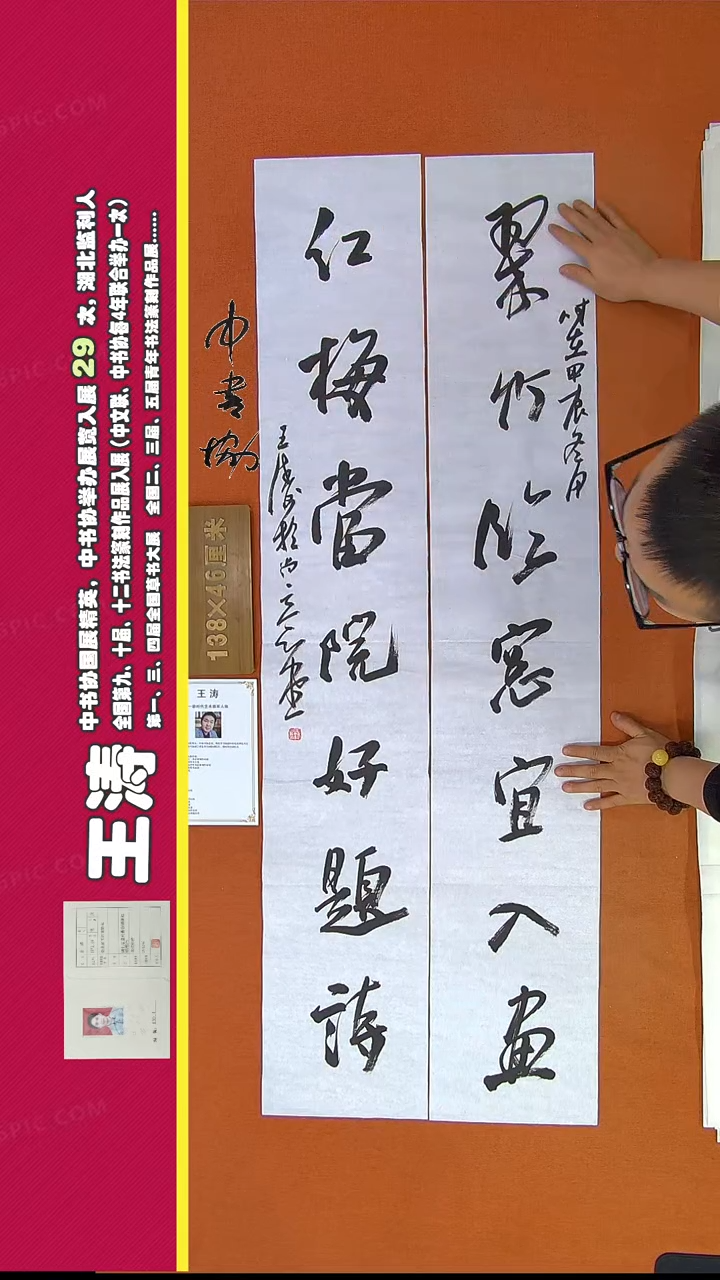 王涛
中书协国展精英，中书协举办展览入展 29 次，湖北监利人
全国第九、十届、十二书法篆刻作品展入展（中文联、中书协每4年联合举办一次）
第一、三、四届全国草书大展 全国二、三届、五届青年书法篆刻作品展......
翠竹临窓宜入画
时在甲辰冬月
红梅當院好題詩
王涛於
中书协
138×46厘米
王涛